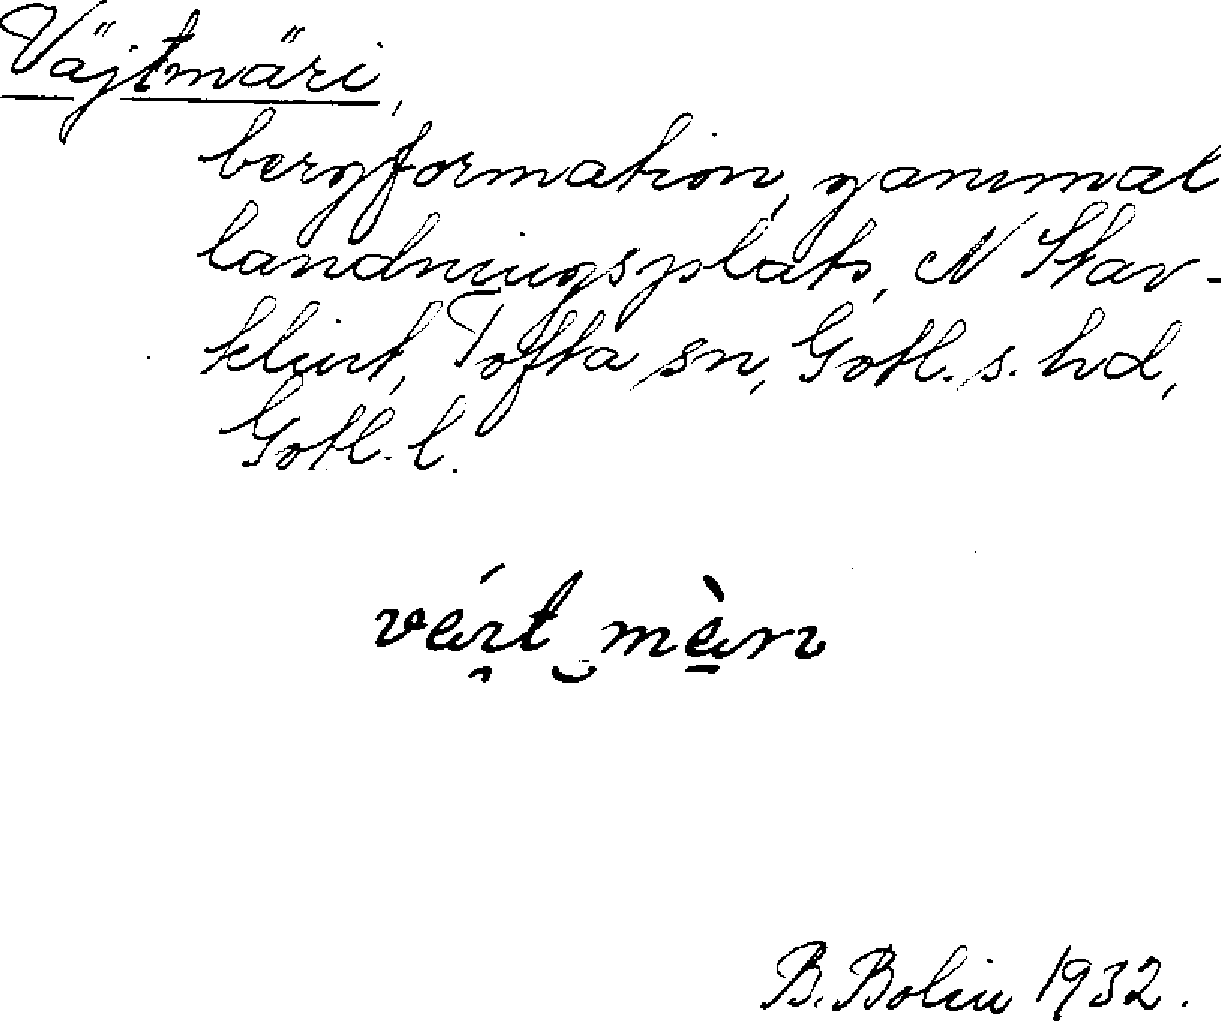 Väjtmäri,
bergformation, gammal
landningsplats, N Stav-
klint, Tofta sn, Gotl. s. hd,
Gotl. l.
B. Bolin 1932.